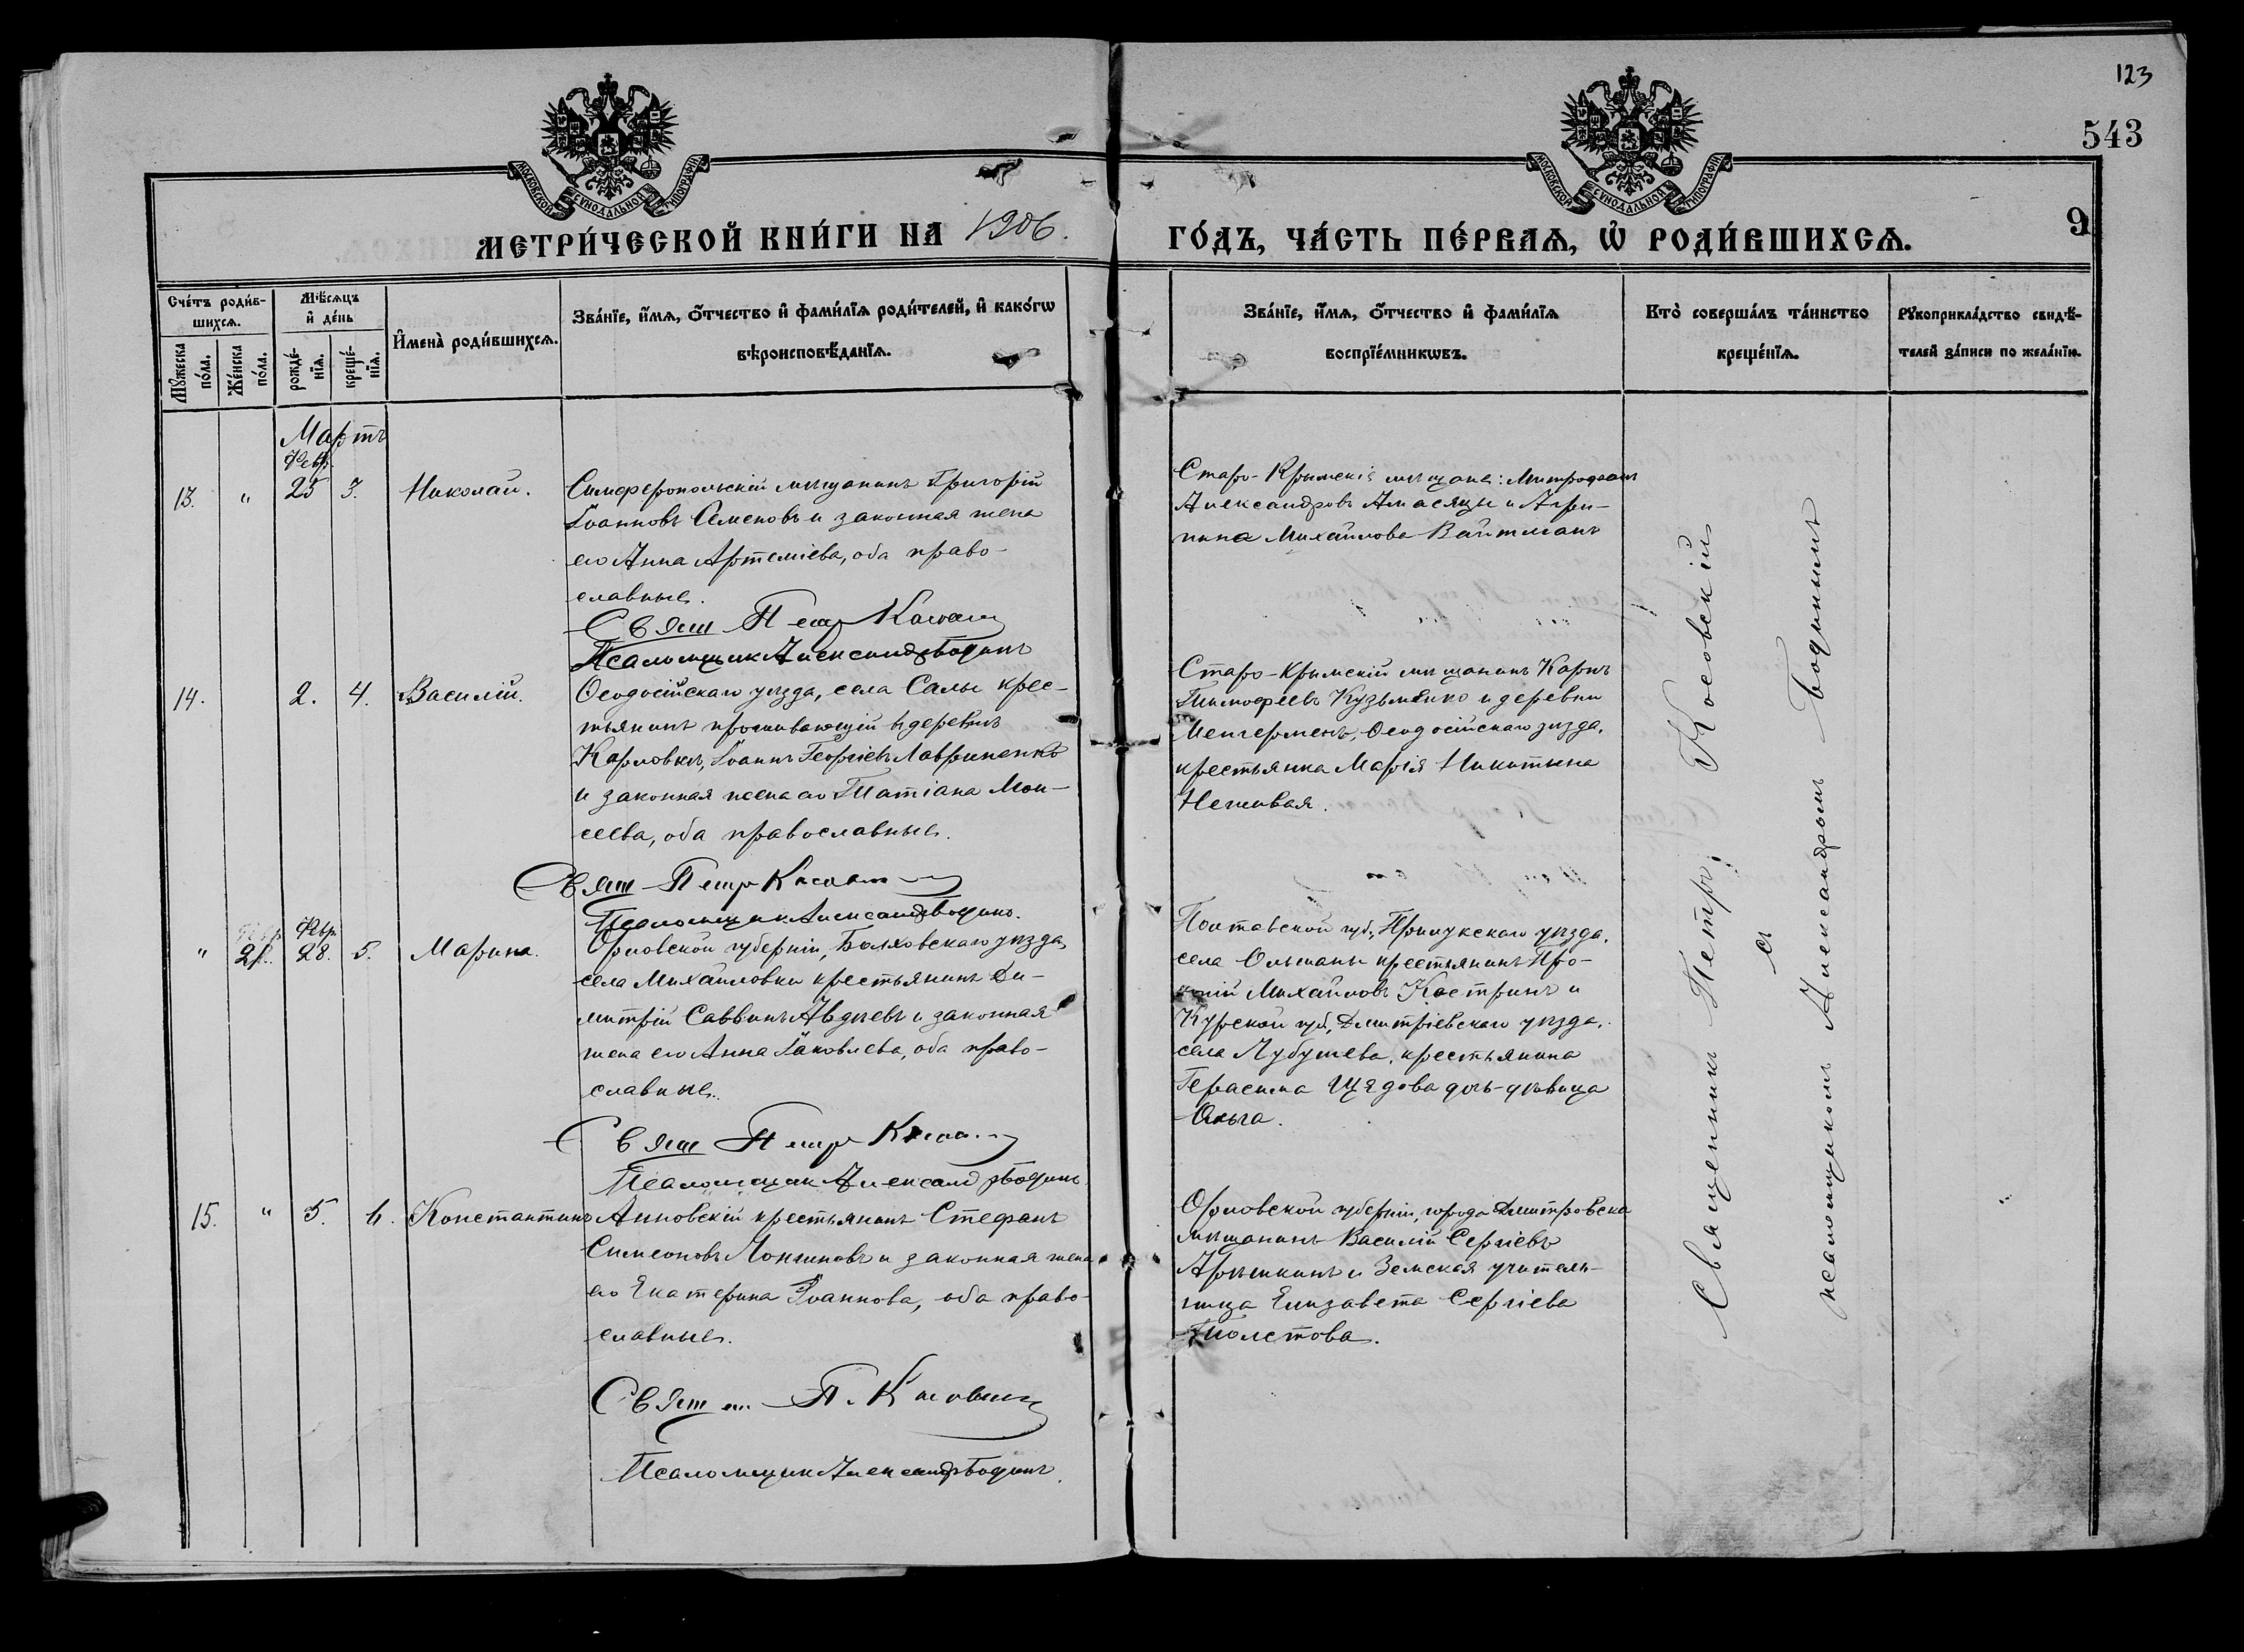 123
543
9
МОСКОВСКОЙ СѴНОДАЛЬНОЙ ТИПОГРАФІИ
МОСКОВСКОЙ СѴНОДАЛЬНОЙ ТИПОГРАФІИ
МЕТРИ́ЧЕСКОЙ КНИ́ГИ НА 1906.
ГО́ДЪ, ЧА́СТЬ ПЕ́РВАѦ, Ѽ РОДИ́ВШИХСѦ.
Сче́тъ роди́в-
шихсѧ.
Мꙋ́жеска по́ла.
Же́нска по́ла.
Мѣ́сѧцъ
и҆ де́нь
рожде́-
нїѧ.
креще́-
нїѧ.
И҆мена̀ роди́вшихсѧ.
Зва́нїе, и҆́мѧ, ѻ҆́тчество и҆ фами́лїѧ роди́телей, и҆ како́гѡ
вѣроисповѣ́данїѧ.
Зва́нїе, и҆́мѧ, ѻ҆́тчество и҆ фами́лїѧ
воспрїе́мникѡвъ.
Кто̀ соверша́лъ та́инство
креще́нїѧ.
Рꙋкоприкла́дство свидѣ́-
телей за́писи по жела́нїю.
Мартъ
Февр.
13. " 25 3. Николай.
Симферопольскій мѣщанинъ Григорій
Іоанновъ Семеновъ и законная жена
его Анна Артеміева, оба право-
славные.
Свящ Петр
Псаломщик Александръ Бодинъ
Старо-Крымскіе мѣщане: Митрофанъ
Александровъ и Агри-
пина Михайлова Вайтманъ
14. 2. 4. Василій.
Ѳеодосійскаго уѣзда, села Салы крес-
тьянинъ проживающій в деревнѣ
Карловкѣ, Іоаннъ Георгіевъ Лавриненко
и законная жена его Татіана Мои-
сеева, оба православные.
Свящ Петр
Псаломщик Александръ Бодинъ.
Старо-Крымскій мѣщанинъ Карпъ
Тимофеевъ Кузьменко и деревни
Ѳеодосійскаго уѣзда,
крестьянка Марія Никитина
Неживая.
Февр.
" 28. 5. Марина.
Орловской губерніи, Болховскаго уѣзда,
села Михайловки крестьянинъ Ди-
митрій Саввинъ Авдѣевъ и законная
жена его Анна Іаковлева, оба право-
славные.
Свящ Петр
Псаломщик Александръ Бодинъ
Полтавской губ., Прилукскаго уѣзда,
села Ольшаны крестьянинъ Про-
копій Михайловъ Костринъ и
Курской губ, Дмитріевскаго уѣзда,
села Лубушева, крестьянина
Герасима Щедова дочь-дѣвица
Ольга.
15. " 5. 6. Константинъ
Анновскій крестьянинъ Стефанъ
Симеоновъ Логиновъ и законная жена
его Екатерина Іоаннова, оба право-
славные.
Свящ П.
Псаломщик Александръ Бодинъ.
Орловской губерніи, города Дмитровска
мѣщанинъ Василій Сергіевъ
и Земская учитель-
ница Елизавета Сергіева
Толстова.
Священникъ Петръ Косовскій
съ
псаломщикомъ Александромъ Бодинымъ